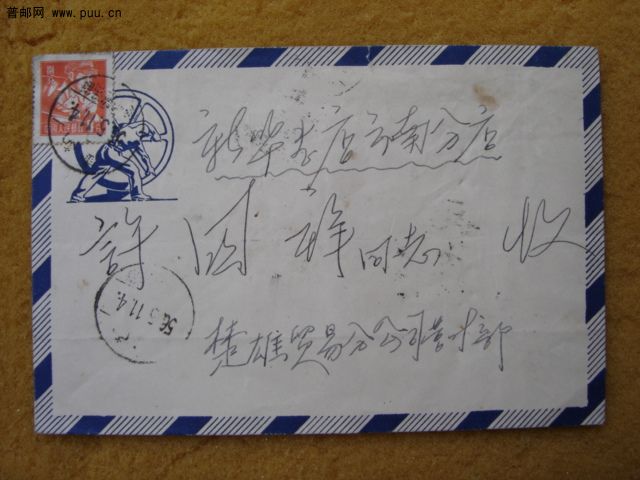 普邮网 www.puu.cn
新华书店云南分店
許国祥同志 收
楚雄贸易分公司营业部
56.5.11.4.